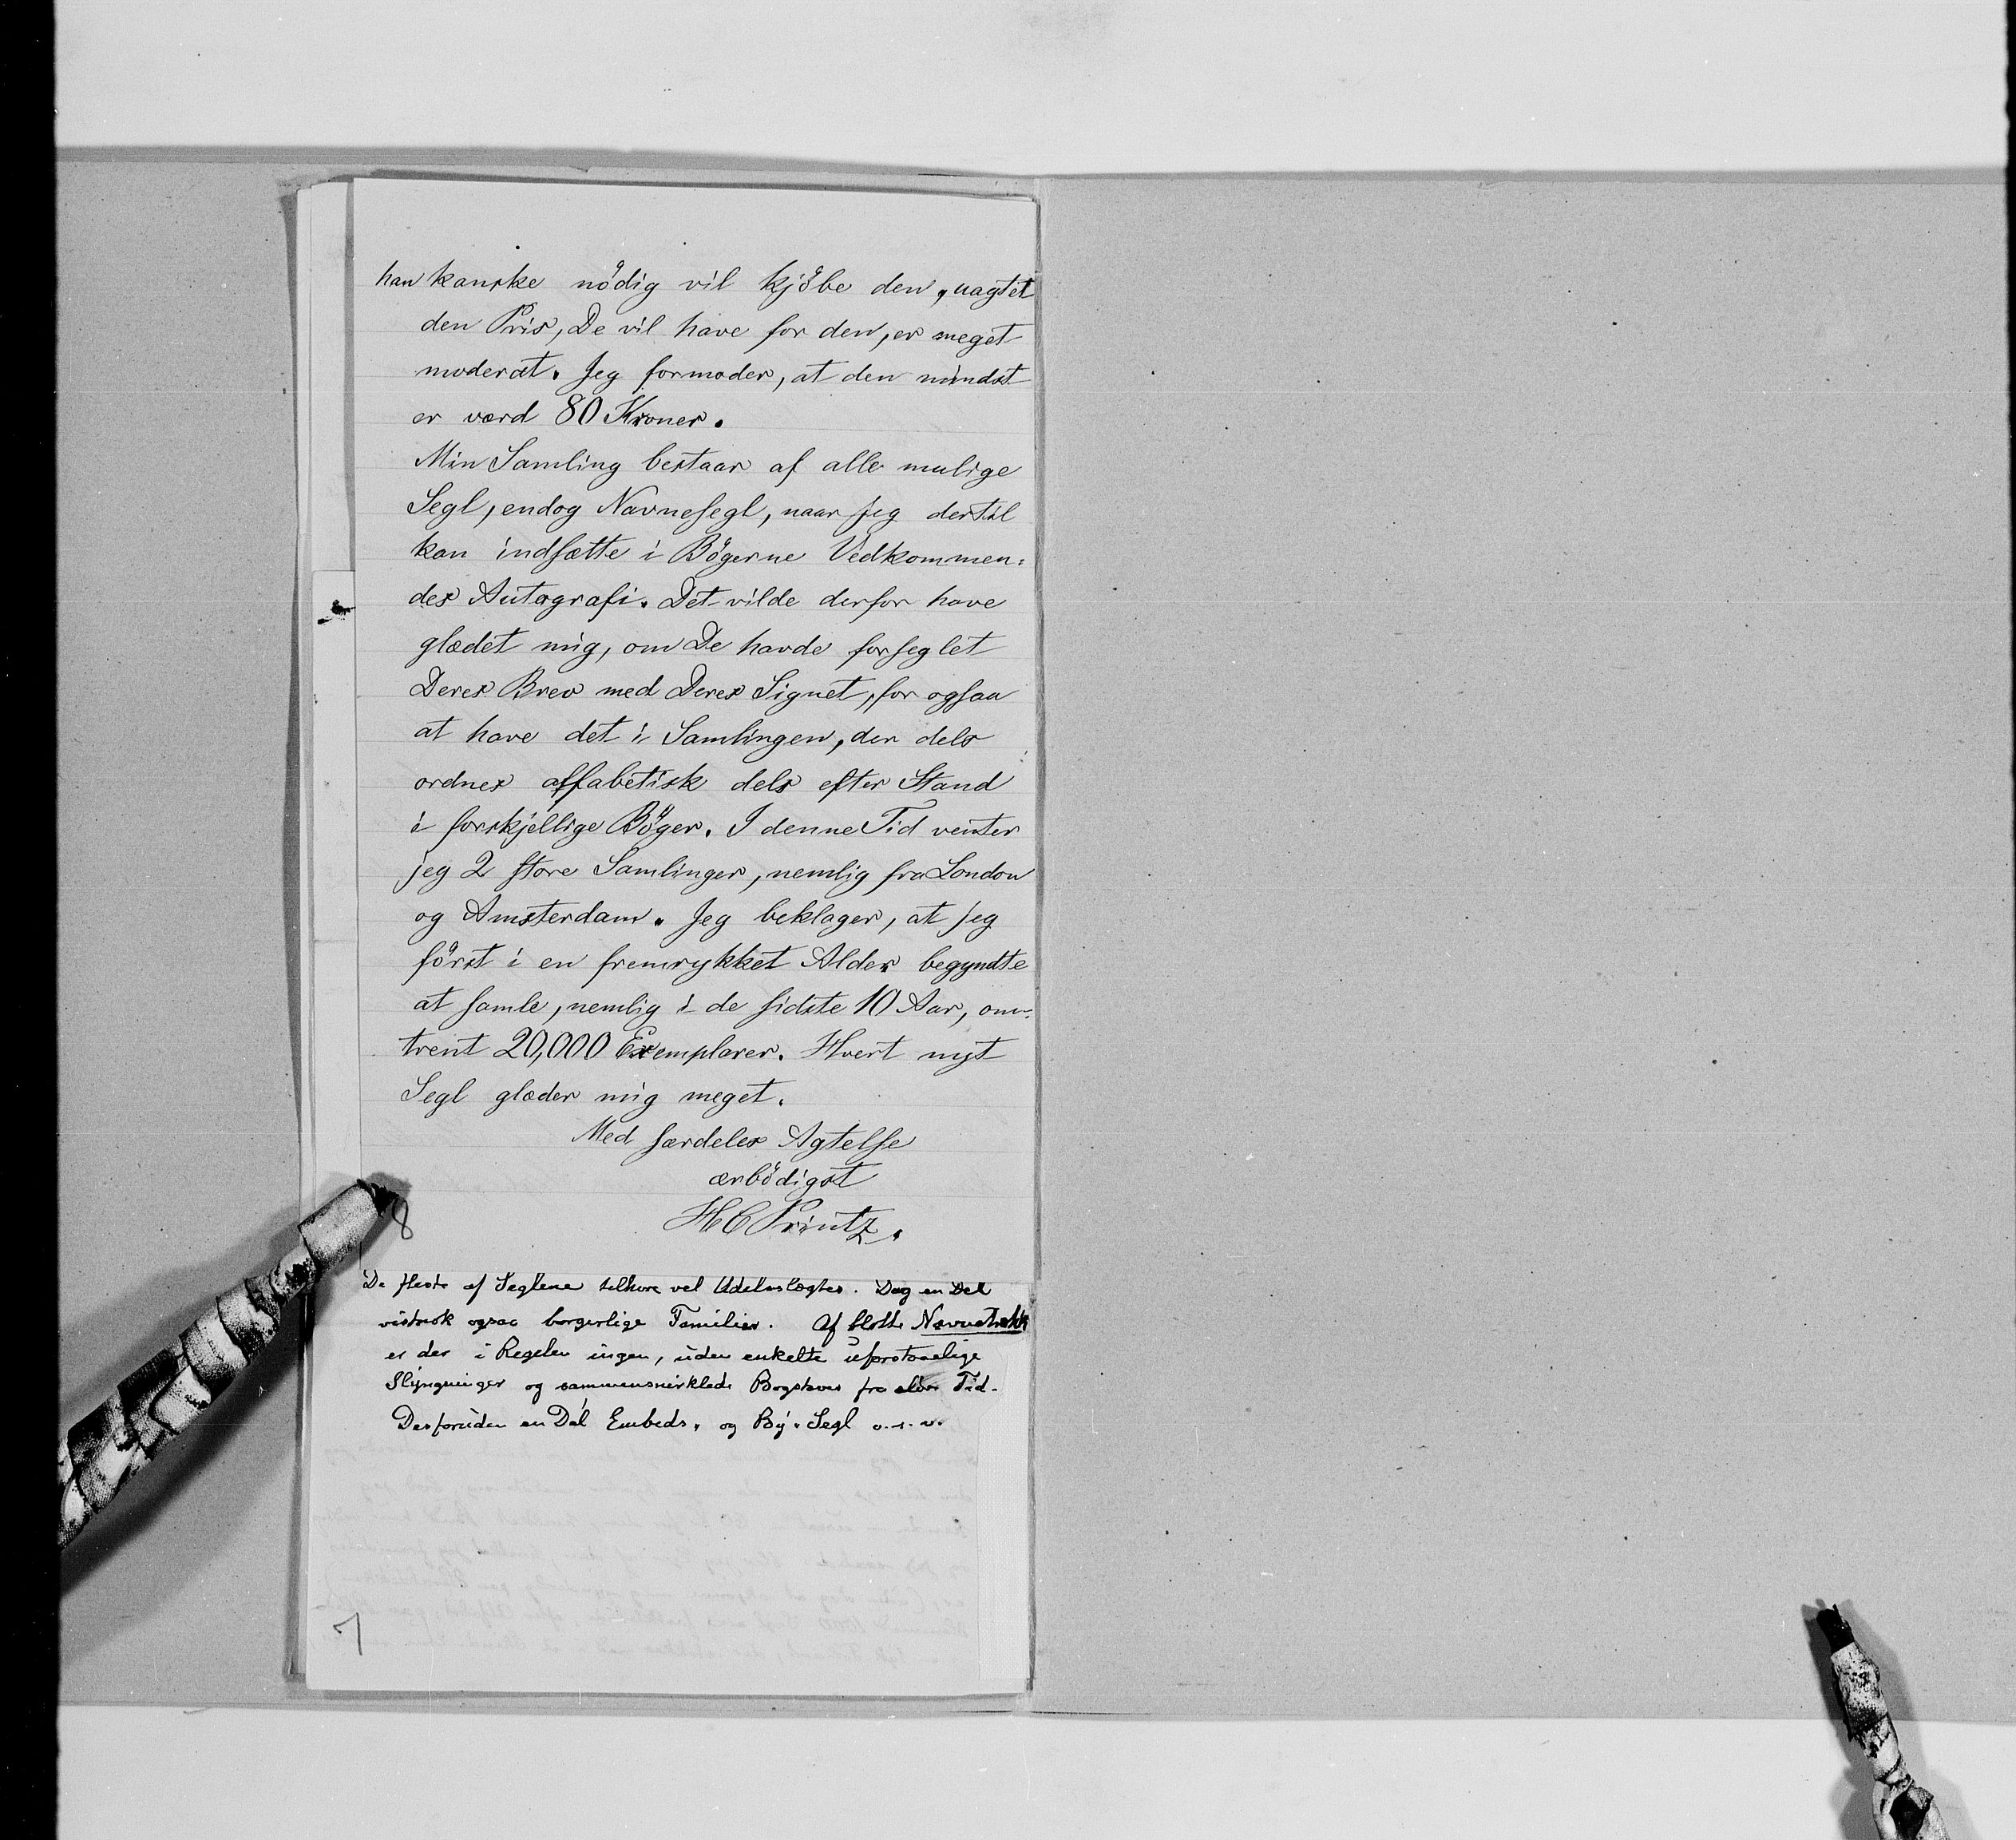 han kanske nödig vil kjöbe den, uagtet
den Pris, De vil have for den, er meget
moderat. Jeg formoder, at den mindst
er værd 80 Kroner.
Min Samling bestaar af alle mulige
Segl, endog Navnesegl, naar jeg dertil
kan indsætte i Bögerne Vedkommen-
des Autografi. Det vilde derfor have
glædet mig, om De havde forseglet
Deres Brev med Deres Signet, for ogsaa
at have det i Samlingen, der dels
ordnes alfabetisk dels efter Stand
i forskjellige Böger. I denne Tid venter
jeg 2 store Samlinger, nemlig fra London
og Amsterdam. Jeg beklager, at jeg
först i en fremrykket Alder begyndte
at samle, nemlig i de sidste 10 Aar, om-
trent 20,000 Exemplarer. Hvert nyt
Segl glæder mig meget.
Med særdeles Agtelse
ærbödigst
HC Printz.
8
De fleste af Seglene tilhøre vel Adelsslægter. Dog en Del
vistnok ogsaa borgerlige Familier. Af blotte Navnetrækk
er der i Regelen ingen, uden enkelte uforstaaelige
Slyngninger og sammensnirklede Bogstaver fra ældre Tid.
Desforuden en Del Embeds- og By-Segl o.s.v.
7